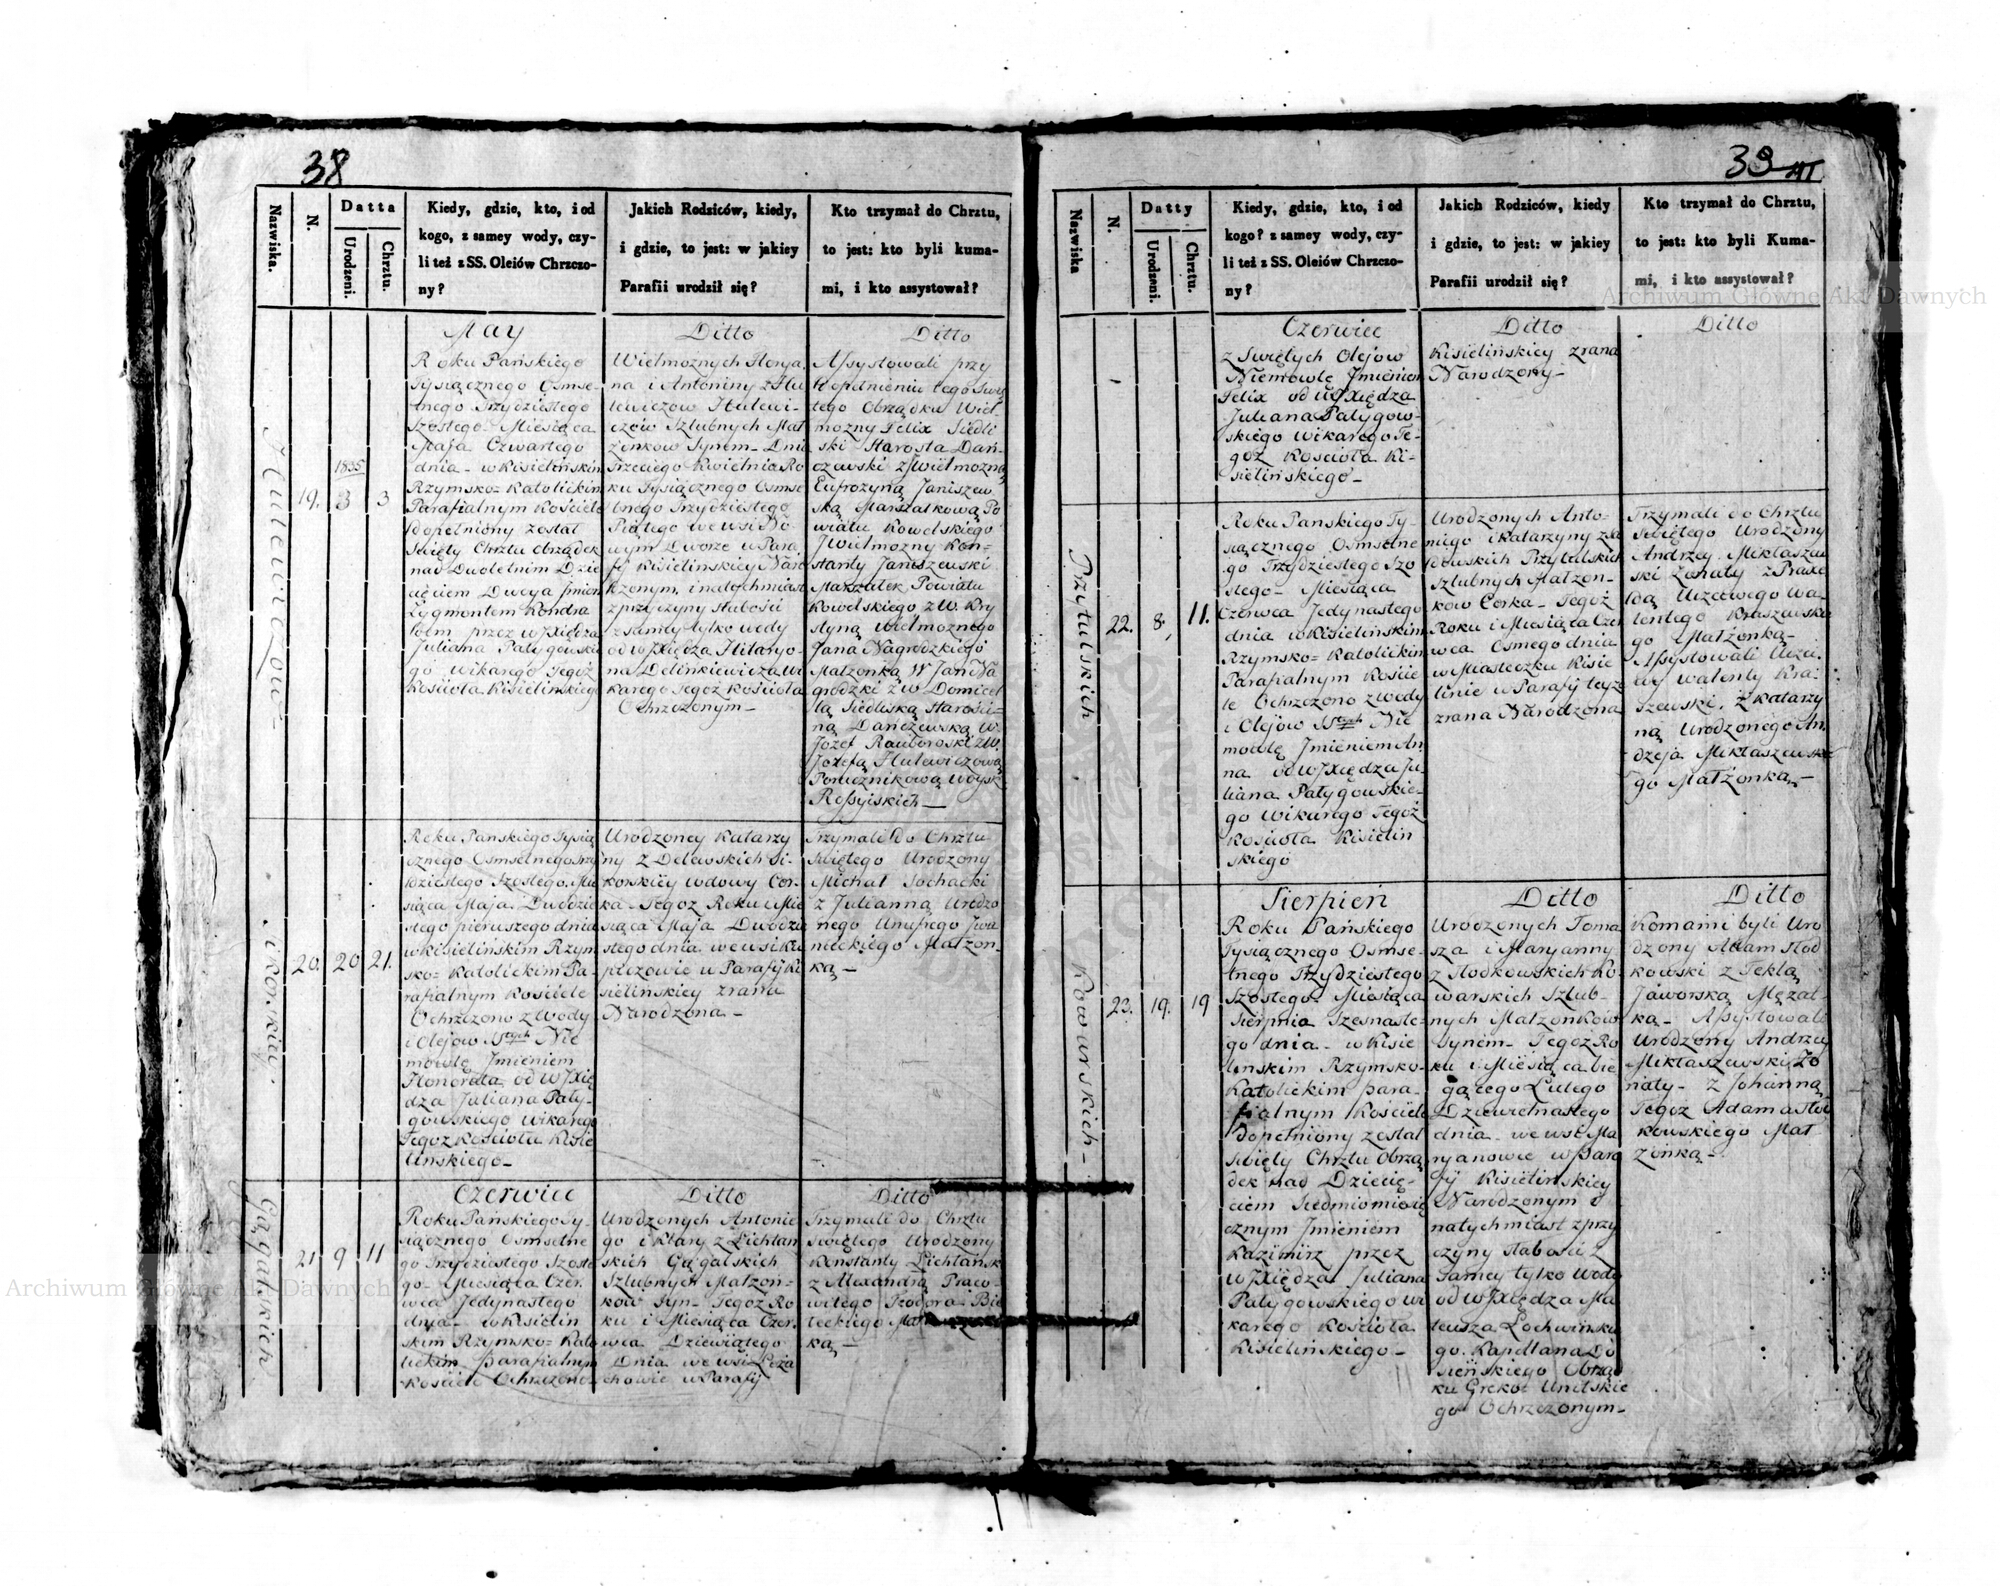 38
Nazwiska.
N.
Datta
Urodzeni.
Chrztu.
Kiedy, gdzie, kto, i od
kogo, z samey wody, czy-
li też z SS. Oleiów Chrzczo-
ny?
Jakich Rodziców, kiedy,
i gdzie, to jest: w jakiey
Parafii urodził się?
Kto trzymał do Chrztu,
to jest: kto byli kuma-
mi, i kto assystował?
19.
1835
3
3
May
Roku Pańskiego
Tysiącznego Osmse-
tnego Trzydziestego
Szostego Miesiąca
Maja Czwartego
dnia - w Kisielińskim
Rzymsko= Katolickim
Parafialnym Kościele
Dopełniony został
Święty Chrztu Obrządek
nad Dwoletnim Dzie
cięciem Dwoyga Jmion
Zygmontem Kondra
tem przez WJXiędza
Juliana Patygowski
go Wikarego Tegoż
Kościoła Kisielińskiego
Ditto
Wielmoznych Floryja
na i Antoniny z Hu
lewiczow Hulewi-
czów Szlubnych Mał
żonkow Synem - Dnia
Trzeciego Kwietnia Ro
ku Tysiącznego Osmse
tnego Trzydziestego
Piątego we wsi No-
wym Dworze w Para
fij Kisielinskiey Naro
dzonym, i natychmiast
z przyczyny słabości
z samey tylko wody
od WJXiędza Hilaryo-
na Delinkiewicza Wi
karego Tegoż Kościoła
Ochrzczonym-
Ditto
Assystowali przy
Dopełnieniu tego Swię
tego Obrządku Wiel-
możny Felix Siedli
ski Starosta Dań-
czewski z Wielmożną
Eufrozyną Janiszew
ską Marszałkową Po
wiatu Kowelskiego
JWielmożny Kon=
stanty Janiszewski
Marszałek Powiatu
Kowelskiego z W. Kry
styną Wielmoznego
Jana Nagrodzkiego
Małżonką W Jan Na
grodzki z W Domicel
lą Siedliską Starości-
ną Dańczewską W.
Józef Rautboroski z W.
Jozefą Hulewiczową
Porucznikową Woysk
Rossyiskich-
20.
20
21.
Roku Pańskiego Tysią
cznego Osmsetnego Trzy
dziestego Szostego Mie
siąca Maja Dwódzie
stego pierwszego dnia
w Kisielińskim Rzym
sko= Katolickim Pa-
rafialnym Kościele
Ochrzczono z Wody
i Olejow SStych Nie
mowlę Jmieniem
Honorata od WJXię
dza Juliana Paty-
gowskiego Wikarego
Tegoż Kościoła Kisie
linskiego-
Urodzoney Katarzy
ny z Delewskich Si-
korskiey wdowy Cor-
ka - Tegoż Roku i Mie
siąca Maja Dwodzie
stego dnia we wsi Ku
piczowie w Parafij Ki
sielińskiey z rana
Narodzona-
Trzymali do Chrztu
Swiętego Urodzony
Michał Sochacki
z Julianną Urodzo
nego Onufrego Jwa
nickiego Małżon-
ką-
Gągalskich
21.
9
11
Czerwiec
Roku Pańskiego Ty-
siącznego Osmsetne
go Trzydziestego Szoste
go- Miesiąca Czer-
wca Jedynastego
dnia - w Kisielin
skim Rzymsko= Kato
lickim Parafialnym
Kościele Ochrzczono
Ditto
Urodzonych Antonie
go i Klary z Lichtań
skich Gągalskich
Szlubnych Małżon=
ków Syn- Tegoż Ro
ku i Miesiąca Czer-
wca Dziewiątego
Dnia we wsi Leża
chowie w Parafij
Ditto
Trzymali do Chrztu
Swiętego Urodzony
Konstanty Lichtańsk
z Alexandrą Praco-
witego Teodora Bie
leckiego
ką-
39
Nazwiska
N.
Datty
Urodzeni.
Chrztu.
Kiedy, gdzie, kto, i od
kogo? z samey wody, czy-
li też z SS. Oleiów Chrzczo-
ny?
Jakich Rodziców, kiedy
i gdzie, to jest: w jakiey
Parafii urodził się?
Kto trzymał do Chrztu,
to jest: kto byli Kuma-
mi, i kto assystował?
Czerwiec
z Swiętych Olejow
Niemowlę Jmieniem
Felix od WJXiędza
Juliana Patygow-
skiego Wikarego Te-
goż Kościoła Ki-
sielińskiego-
Ditto
Kisielińskiey z rana
Narodzony-
Ditto
Przytulskich
22.
8.
11.
Roku Pańskiego Ty-
siącznego Osmsetne
go Trzydziestego Szo
stego- Miesiąca
Czerwca Jedynastego
dnia w Kisielińskim
Rzymsko= Katolickim
Parafialnym Koście
le Ochrzczono z wody
i Olejów SStych Nie
mowlę Jmieniem An
na od WJXiędza Ju-
liana Patygowskie-
go Wikarego Tegoż
Kościoła Kisielin
skiego
Urodzonych Anto=
niego i Katarzyny z Sa
dowskich Przytulskich
Szlubnych Małżon-
kow Corka- Tegoż
Roku i Miesiąca Czer
wca Osmego dnia
w Miasteczku Kisie
linie w Parafij teyże
z rana Narodzona
Trzymali do Chrztu
Swiętego Urodzony
Andrzey Mikłaszew
ski Żonaty z Praxe
dą Uczciwego Wa-
lentego Kraszewskie
go Małżonką-
Assystowali Uczci
wy Walenty Kra-
szewski, z Katarzy
ną Urodzonego An,
drzeja Mikłaszewskie
go Małżonką-
Kowarskich-
23.
19.
19
Sierpień
Roku Pańskiego
Tysiącznego Osmse-
tnego Trzydziestego
Szostego Miesiąca
Sierpnia Szesnaste-
go dnia - w Kisie
linskim Rzymsko-
Katolickim para-
fialnym Kościele
Dopełniony został
Swięty Chrztu Obrzą
dek nad Dziecię-
ciem Siedmiomiesię
cznym Jmieniem
Kazimirz przez
WJXiędza Juliana
Patygowskiego Wi
karego Kościoła
Kisielińskiego-
Ditto
Urodzonych Toma
sza i Maryanny
z Słodkowskich Ko-
warskich Szlub-
nych Małżonków
Synem- Tegoż Ro
ku i Miesiąca bie
gącego Lutego
Dziewietnastego
dnia - we wsi Ma
ryanowie w Para
fij Kisielinskiey
Narodzonym i
natychmiast z przy
czyny słabości z
Samey tylko Wody
od WJXiędza Ma
teusza Lochwinskie
go. Kapłana Do
sieńskiego Obrzą
ku Greko= Unitskie
go Ochrzczonym-
Ditto
Kumami byli Uro
dzony Adam Słod
kowski z Teklą
Jaworską Męzat-
ką- Assystowali
Urodzony Andrzey
Mikłaszewski Żo
naty- z Johanną
Tegoż Adama Słod
kowskiego Mał
żonką-
Archiwum Główne Akt Dawnych
Archiwum Główne Akt Dawnych